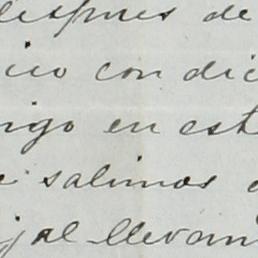 después de
ico con dic
igo en est
salimos
al llevan